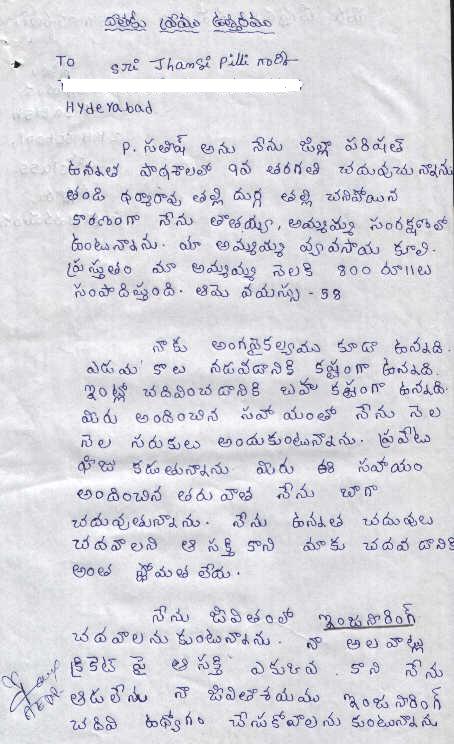 To Sri Jhansi Pilli గారికి
Hyderabad
P. సతీష్ అను నేను జిల్లా పరిషత్
ఉన్నత పాఠశాలలో 9వ తరగతి చదువుచున్నాను
తండ్రి ధర్మారావు తల్లి దుర్గ తల్లి చనిపోయిన
కారణంగా నేను తాతయ్య, అమ్మమ్మ సంరక్షణలో
ఉంటున్నాను. మా అమ్మమ్మ వ్యవసాయ కూలి.
ప్రస్తుతం మా అమ్మమ్మ నెలకి 800 రూ॥లు
సంపాదిస్తుంది. ఆమె వయస్సు - 58
నాకు అంగవైకల్యము కూడా ఉన్నది.
ఎడమ కాలు నడవడానికి కష్టంగా ఉన్నది.
ఇంట్లో చదివించడానికి బహు కష్టంగా ఉన్నది.
మీరు అందించిన సహాయంతో నేను నెల
నెల సరుకులు అందుకుంటున్నాను. ప్రవేటు
ఫీజు కడుతున్నాను మీరు ఈ సహాయం
అందించిన తరువాత నేను బాగా
చదువుతున్నాను. నేను ఉన్నత చదువులు
చదవాలని ఆ సక్తి కాని మాకు చదవ డానికి
అంత స్తోమత లేదు.
నేను జీవితంలో ఇంజనీరింగ్
చదవాలను కుంటున్నాను. నా అలవాట్లు
క్రికెట్ పై ఆ సక్తి ఎక్కువ. కాని నేను
ఆడలేను నా జీవితాశయము ఇంజనీరింగ్
చదివి ఉద్యోగం చేసుకోవాలను కుంటున్నాను